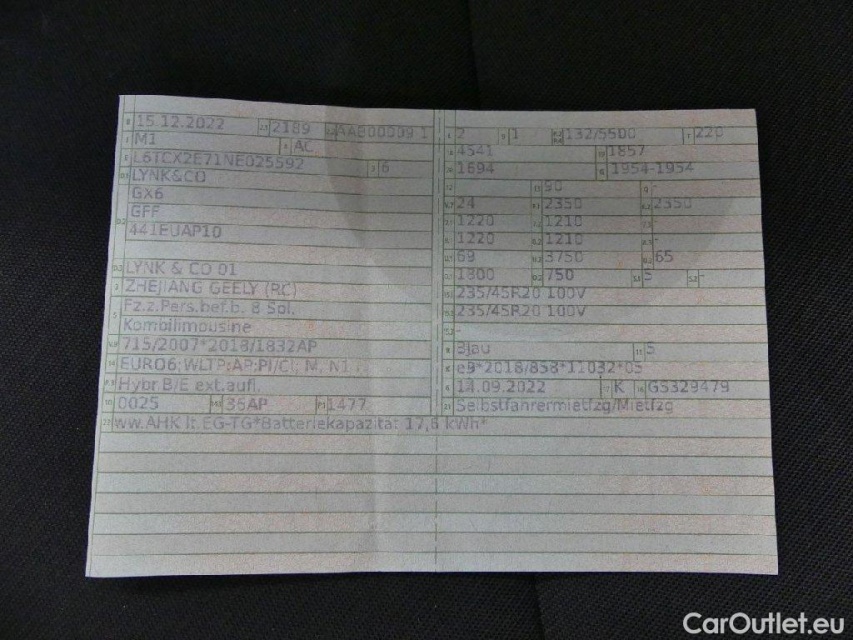 15.12.2022 2189 AAB00009 1
M1 AC
L6TCX2E71NE025592 6
LYNK&CO
GX6
GFF
441EUAP10
LYNK & CO 01
ZHEJIANG GEELY (RC)
Fz.z.Pers.bef.b. 8 Spl.
Kombilimousine
715/2007*2018/1832AP
EURO6;WLTP;AP;PI/CI; M, N1 I
Hybr.B/E ext.aufl.
0025 36AP 1477
2 1 132/5500 220
4541 1857
1694 1954-1954
90 -
24 2350 2350
1220 1210
1220 1210 -
69 3750 65
1800 750 5 -
235/45R20 100V
235/45R20 100V
-
Blau 5
e9*2018/858*11032*05
14.09.2022 K GS329479
Selbstfahrermietfzg/Mietfzg
ww.AHK lt.EG-TG*Batteriekapazität 17,6 kWh*
CarOutlet.eu